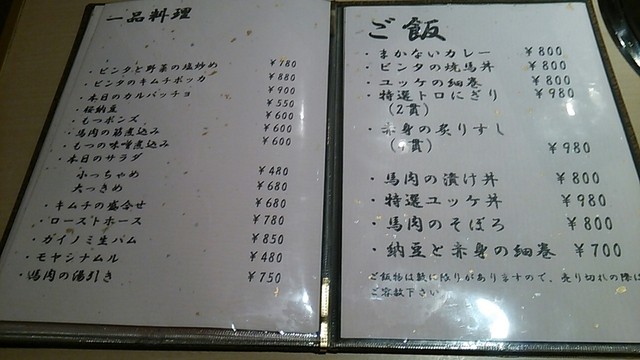 一品料理
・ビンタと野菜の塩炒め ￥780
・ビンタのキムチポッカ ￥880
・本日のカルパッチョ ￥900
・桜納豆 ￥550
・もつポンズ ￥600
・馬肉の筋煮込み ￥600
・もつの味噌煮込み ￥600
・本日のサラダ
小っちゃめ ￥480
大っきめ ￥680
・キムチの盛合せ ￥680
・ローストホース ￥780
・ガイノミ生ハム ￥850
・モヤシナムル ￥480
・馬肉の湯引き ￥750
ご飯
・まかないカレー ￥800
・ビンタの焼馬丼 ￥800
・ユッケの細巻 ￥800
・特選トロにぎり ￥980
(2貫)
・赤身の炙りすし
￥980
・馬肉の漬け丼 ￥800
・特選ユッケ丼 ￥980
・馬肉のそぼろ ￥800
・納豆と赤身の細巻 ￥700
ご飯物は数に限りがありますので、売り切れの際は
ご容赦下さい